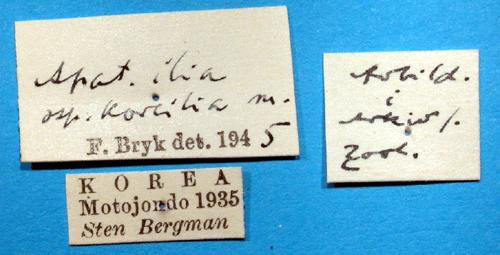 Apat. ilia
ssp. Koreilia m.
F. Bryk det. 1945
KOREA
Motojondo 1935
Sten Bergman
Avbild.
i
Arkiv f.
Zool.